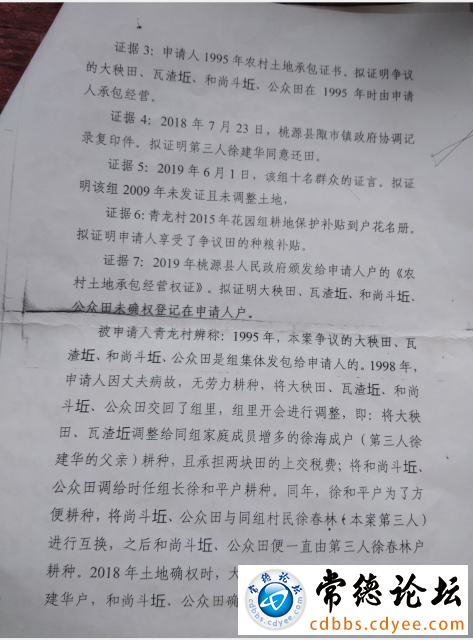 证据 3：申请人 1995 年农村土地承包证书。拟证明争议
的大秧田、瓦渣坵、和尚斗坵、公众田在 1995 年时由申请
人承包经营。
证据 4：2018 年 7 月 23 日，桃源县陬市镇政府协调记
录复印件。拟证明第三人徐建华同意还田。
证据 5：2019 年 6 月 1 日，该组十名群众的证言。拟证
明该组 2009 年未发证且未调整土地，
证据 6：青龙村 2015 年花园组耕地保护补贴到户花名册。
拟证明申请人享受了争议田的种粮补贴。
证据 7：2019 年桃源县人民政府颁发给申请人户的《农
村土地承包经营权证》。拟证明大秧田、瓦渣坵、和尚斗坵、
公众田未确权登记在申请人户。
被申请人青龙村辨称：1995 年，本案争议的大秧田、瓦
渣坵、和尚斗坵、公众田是组集体发包给申请人的。1998 年，
申请人因丈夫病故，无劳力耕种，将大秧田、瓦渣坵、和尚
斗坵、公众田交回了组里，组里开会进行调整，即：将大秧
田、瓦渣坵调整给同组家庭成员增多的徐海成户（第三人徐
建华的父亲）耕种，且承担两块田的上交税费；将和尚斗坵、
公众田调给时任组长徐和平户耕种。同年，徐和平户为了方
便耕种，将尚斗坵、公众田与同组村民徐春林（本案第三人）
进行互换，之后和尚斗坵、公众田便一直由第三人徐春林户
耕种。2018 年土地确权时，大
建华户，和尚斗坵、公众田确
常德论坛
cdbbs.cdyee.com